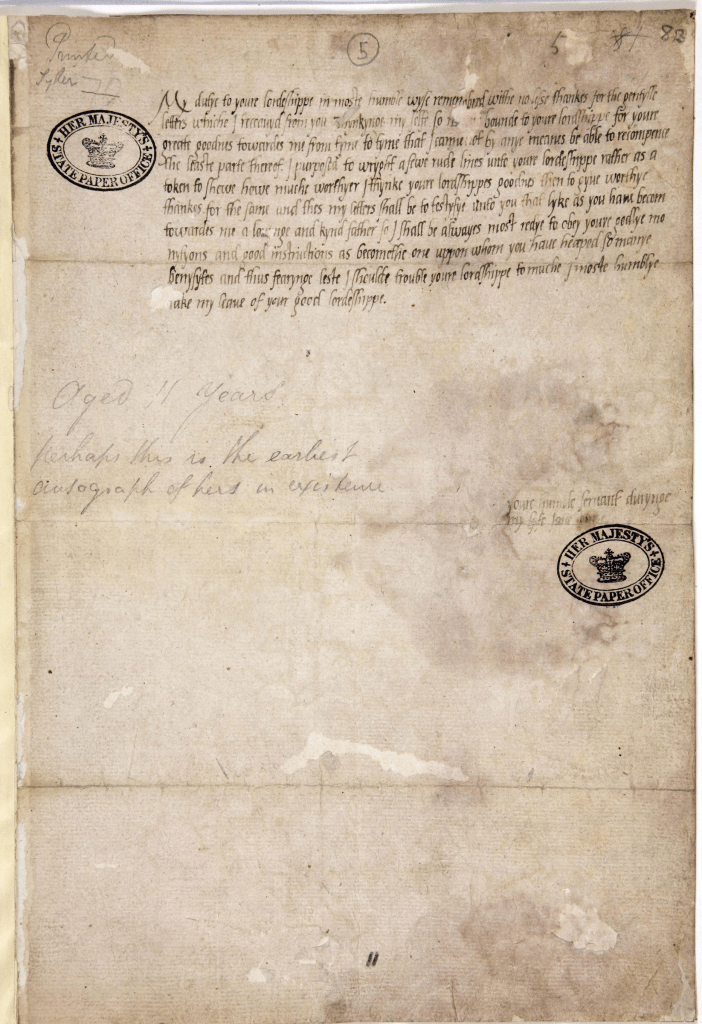 Printed
Tytler
5
5
83
HER MAJESTY'S STATE PAPER OFFICE
My dutye to youre lordeshippe in moste humble wyse remembred withe no lesse thankes for the gentylle
letters whiche I receaved from you Thinkynge my selfe so bounde to youre lordshippe for youre
greate goodnes towardes me from tyme to tyme that I canne not by anye meanes be able to recompence
the leaste parte thereof I purposed to wryght a fewe rude lines unto youre lordeshippe rather as a
token to shewe howe muche worthyer I thynke youre lordshippes goodnes then to gyve worthye
thankes for the same and thes my letters shall be to testyfye unto you that lyke as you have becom
towardes me a lovynge and kynd father so I shall be alwayes most redye to obey youre godlye mo
nytyons and good instructions as becomethe one uppon whom you have heaped so manye
benyfytes and thus fearynge leste I shoulde trouble youre lordshippe to muche I moste humblye
take my leave of your good lordeshippe.
Aged 11 Years.
Perhaps this is the earliest
autograph of hers in existence
youre humble servant durynge
my lyfe
HER MAJESTY'S STATE PAPER OFFICE